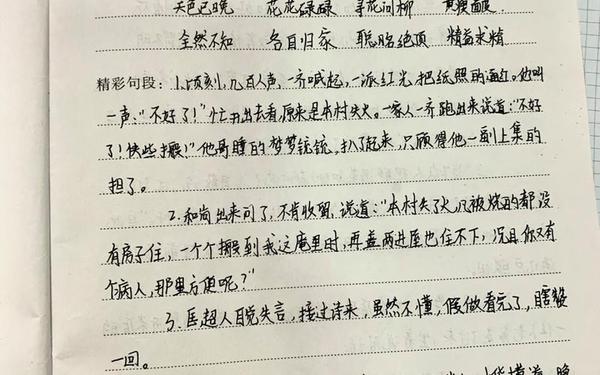 天色已晚 花花碌碌 寻花问柳 黄瘦面皮
全然不知 各自归家 聪明绝顶 精益求精
精彩句段：1.顷刻，几百人声，一齐喊起，一派红光，把纸照的通红。他叫
一声：“不好了！”忙开出去看，原来是本村失火。一家人一齐跑出来说道：“不好
了！快些搬！”他哥睡的梦梦铳铳，扒了起来，只顾得他一副上集的
担了。
2.和尚出来问了，不肯收留，说道：“本村失了火，凡被烧的都没
有房子住，一个个搬到我这庵里时，再盖两进屋也住不下，况且你又有
个病人，那里方便呢？”
3.匡超人自觉失言，接过诗来，虽然不懂，假做看完了，瞎赞
一回。